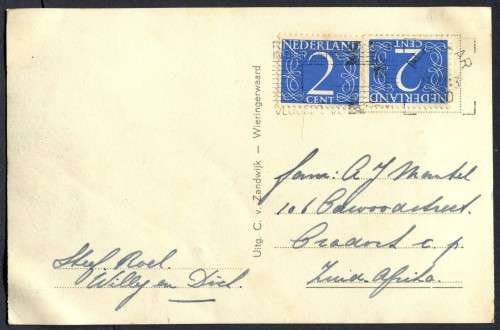 NEDERLAND
2
CENT
NEDERLAND
2
CENT
Uitg. C. v. Zandwijk — Wieringerwaard
Fam: A J Mantel
106 Cawoodstreet.
Cradock c.p.
Zuid-Afrika.
Stef, Roel.
Willy en Dick.